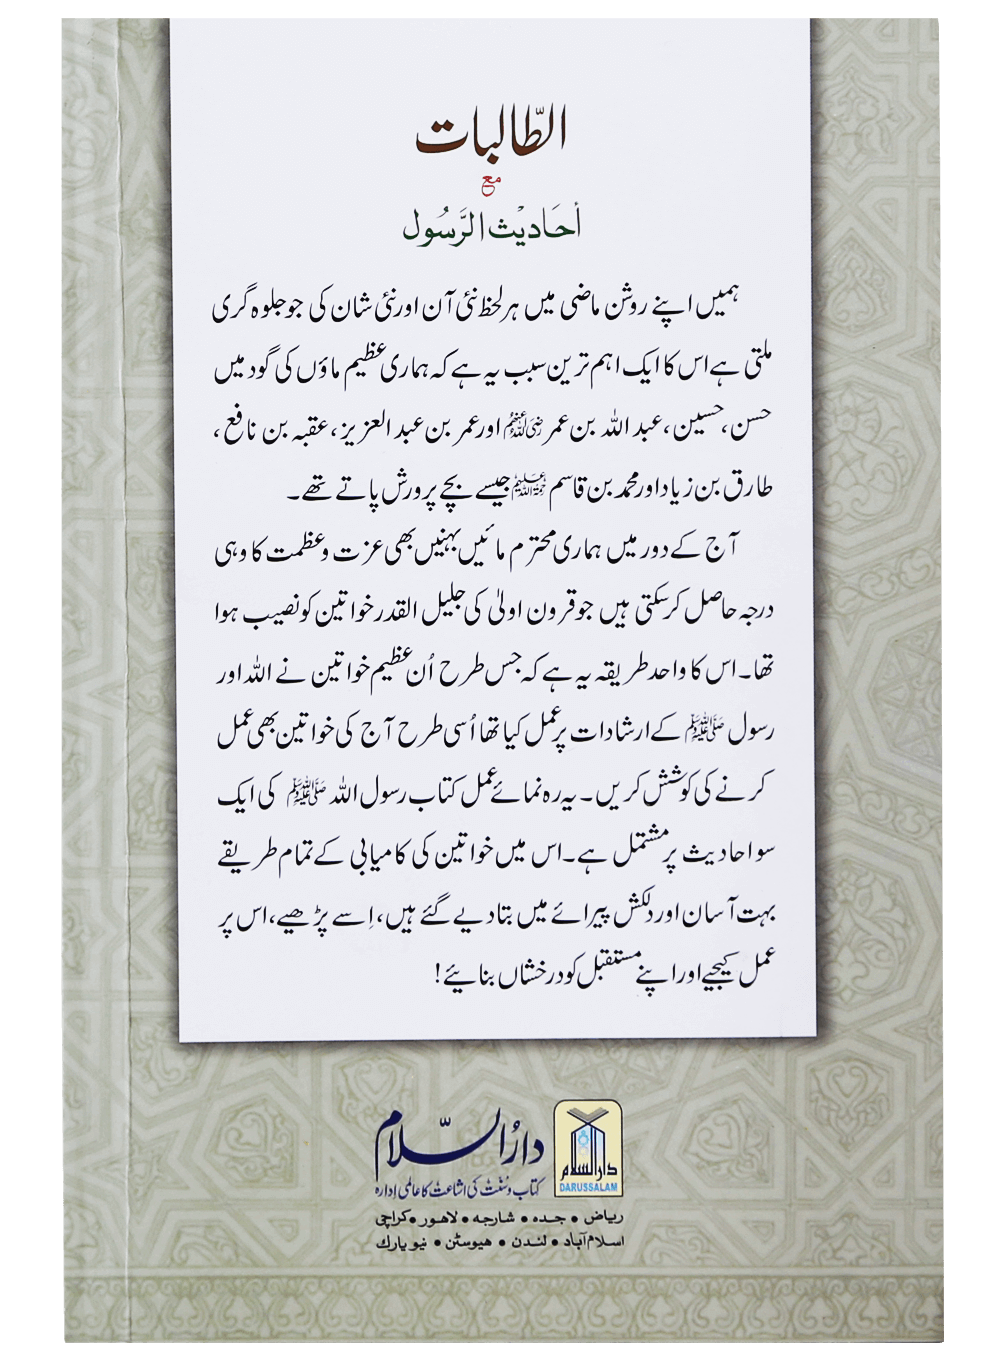 الطّالبات
مع
أحَادیْث الرَّسُول
ہمیں اپنے روشن ماضی میں ہر لحظ نئی آن اور نئی شان کی جو جلوہ گری
ملتی ہے اس کا ایک اہم ترین سبب یہ ہے کہ ہماری عظیم ماؤں کی گود میں
حسن، حسین، عبد اللہ بن عمر رضی اللہ عنہم اور عمر بن عبد العزیز، عقبہ بن نافع،
طارق بن زیاد اور محمد بن قاسم رحمۃ اللہ علیہم جیسے بچے پرورش پاتے تھے۔
آج کے دور میں ہماری محترم مائیں بہنیں بھی عزت و عظمت کا وہی
درجہ حاصل کر سکتی ہیں جو قرون اولیٰ کی جلیل القدر خواتین کو نصیب ہوا
تھا۔ اس کا واحد طریقہ یہ ہے کہ جس طرح اُن عظیم خواتین نے اللہ اور
رسول ﷺ کے ارشادات پر عمل کیا تھا اُسی طرح آج کی خواتین بھی عمل
کرنے کی کوشش کریں۔ یہ رہ نمائے عمل کتاب رسول اللہ ﷺ کی ایک
سو احادیث پر مشتمل ہے۔ اس میں خواتین کی کامیابی کے تمام طریقے
بہت آسان اور دلکش پیرائے میں بتا دیے گئے ہیں، اِسے پڑھیے، اس پر
عمل کیجیے اور اپنے مستقبل کو درخشاں بنایئے!
دارُالسّلام
دارالسلام
DARUSSALAM
کتاب و سُنّت کی اشاعت کا عالمی ادارہ
ریاض • جدہ • شارجہ • لاہور • کراچی
اسلام آباد • لندن • ہیوسٹن • نیو یارک